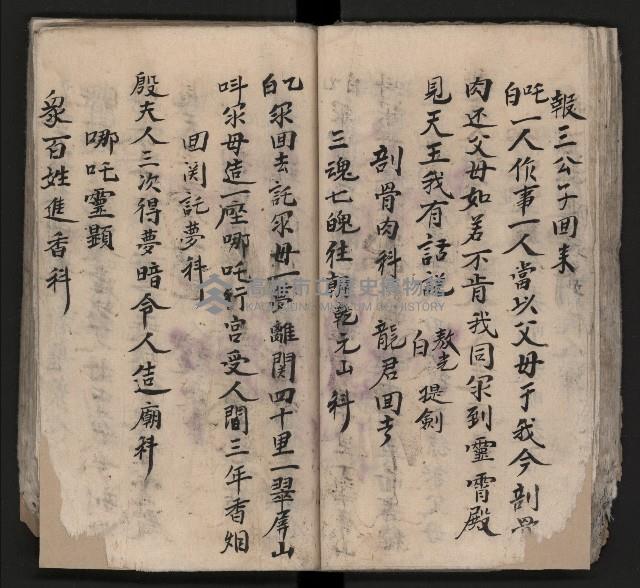 報三公子回来
吒白一人作事一人當以父母于我今剖骨
肉还父母如若不肯我同尔到靈霄殿
見天王我有話説 敖光白 提劍
剖骨肉科 龍君回去
三魂七魄往朝乾元山科
乙白尔回去託尔母一夢離関四十里一翠屏山
叫尔母造一座哪吒行宮受人間三年香烟
回関託夢科
殷夫人三次得夢暗令人造廟科
哪吒靈顯
衆百姓進香科
高雄市立歷史博物館
KAOHSIUNG MUSEUM OF HISTORY